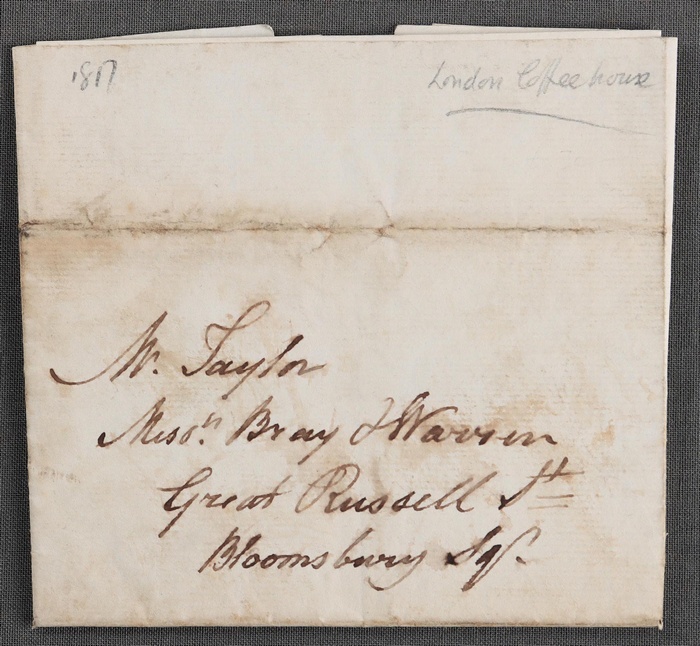 1817 London Coffee house
Mr. Taylor
Messrs. Bray & Warren
Great Russell St
Bloomsbury Sqr.